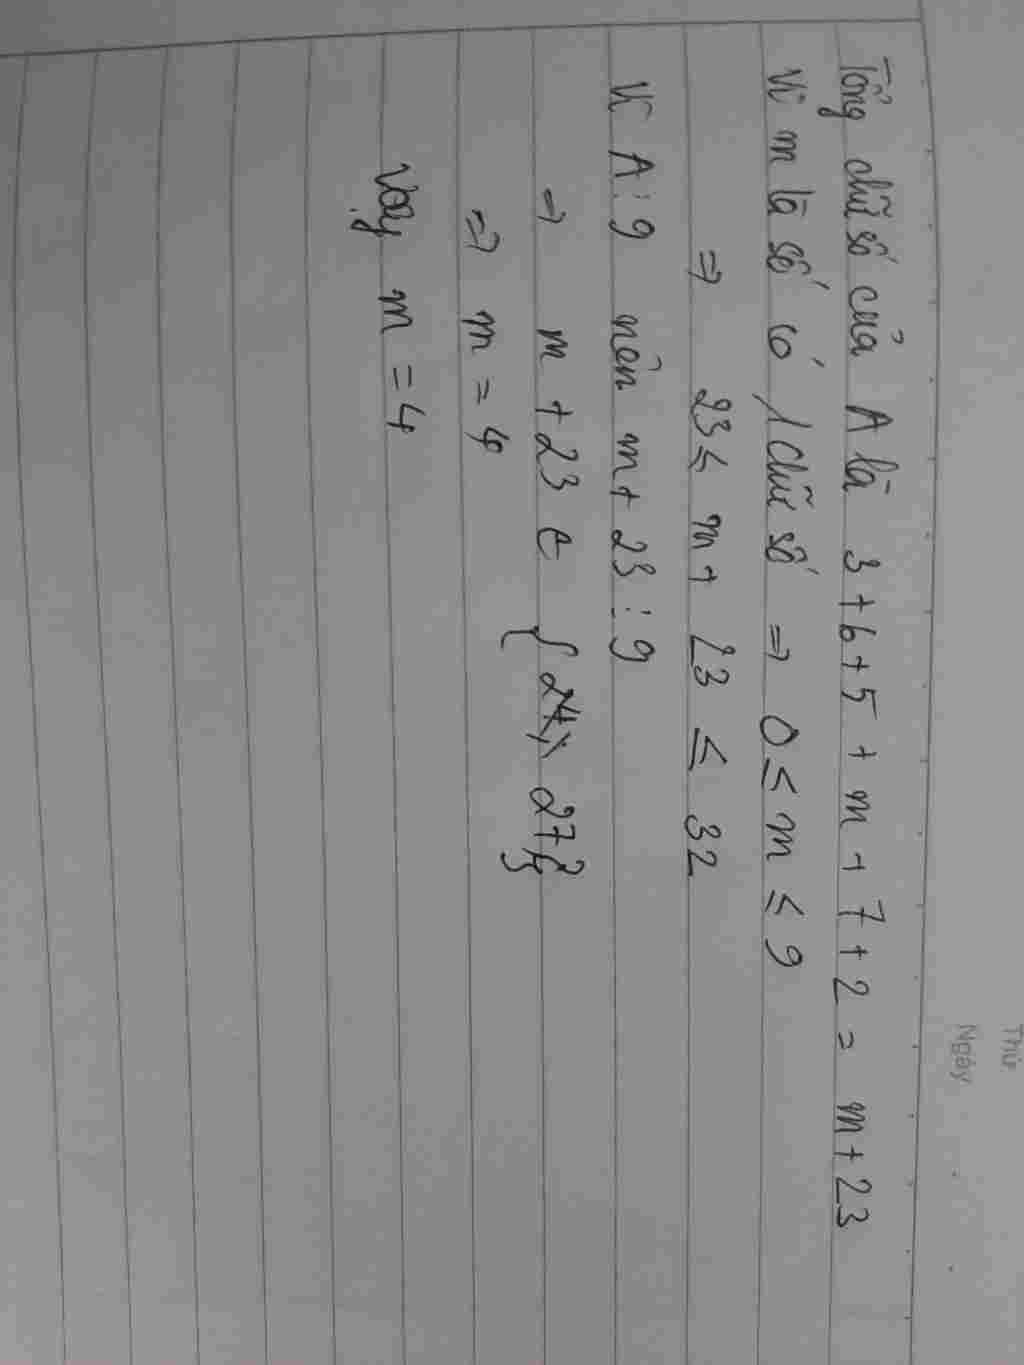 Thứ
Ngày
Tổng chữ số của A là 3+6+5+m+7+2 = m+23
Vì m là số có 1 chữ số => 0 ≤ m ≤ 9
=> 23 ≤ m+ 23 ≤ 32
Vì A ⋮ 9 nên m+23 ⋮ 9
=> m +23 ∈ { 27}
=> m = 4
Vậy m = 4